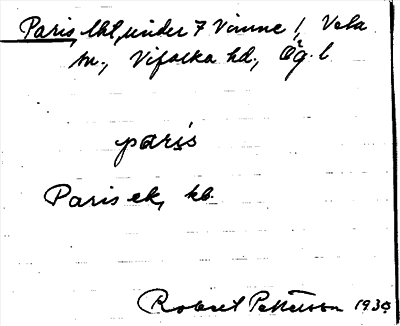 Paris, lht, under 7 Vinne 1, Veta
sn., Vifolka hd., Ög. l.
paris
Paris ek, kb.
Robert Pettersson 1930